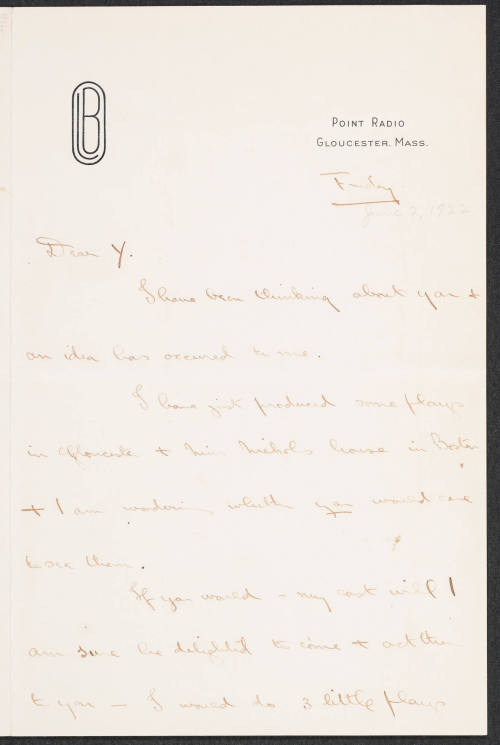 LB
POINT RADIO
GLOUCESTER, MASS.
Friday
June 2, 1922
Dear Y.
I have been thinking about you +
an idea has occured to me.
I have just produced some plays
in Gloucester + Miss Nichols house in Boston
+ I am wondering whether you would care
to see them.
If you would – my cast will I
am sure be delighted to come + act them
to you – I would do 3 little plays